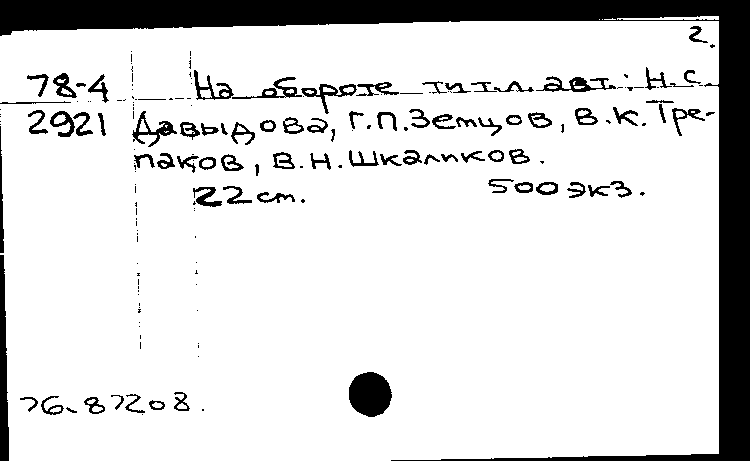 2.
78-4 На обороте тит.л. авт.: Н.С.
2921 Давыдова, Г.П.Земцов, В.К.Тре-
паков, В.Н.Шкаликов.
22 см. 500 экз.
76-87208.